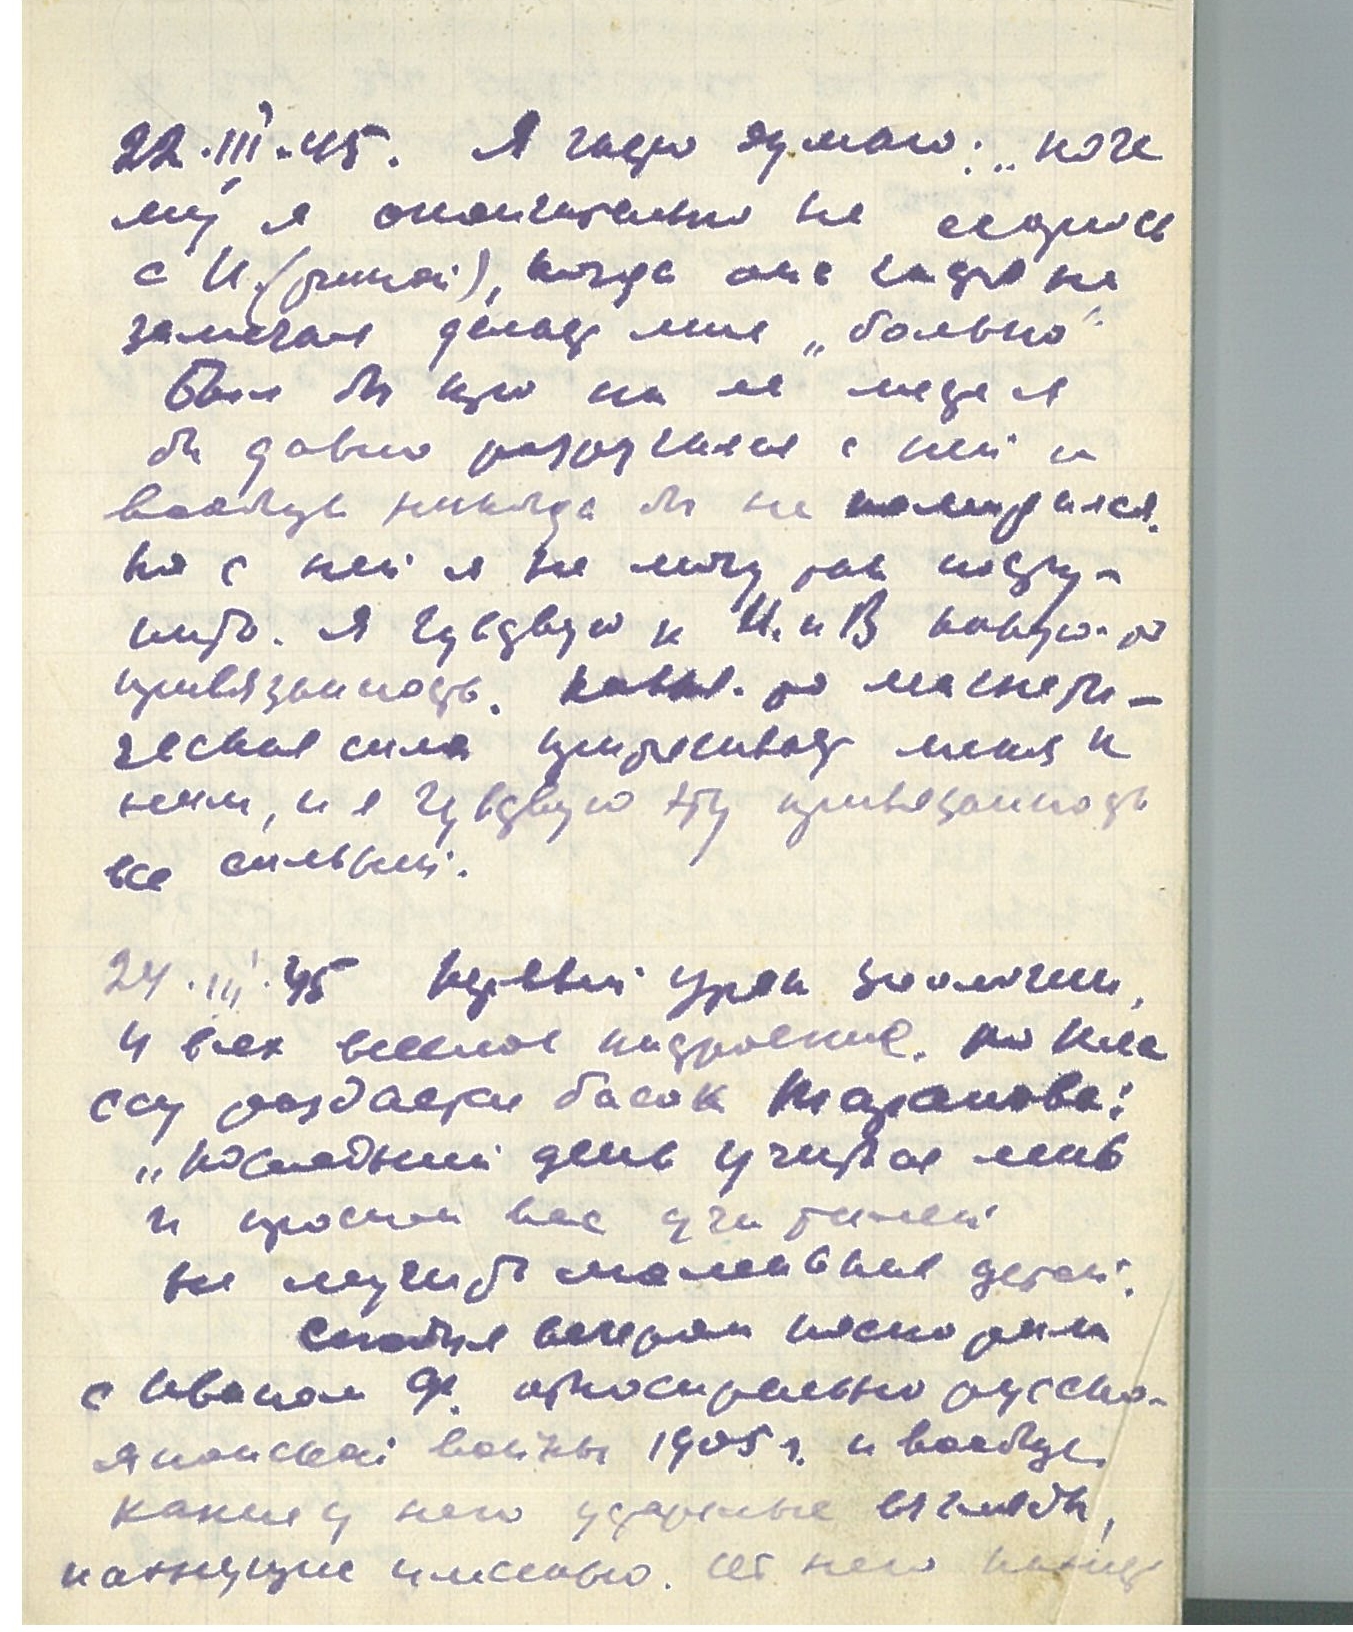 22.III.45. Я часто думаю: „поче
му я окончательно не ссорюсь
с И.(риной), когда она иногда не
замечая делает мне „больно".
Был бы кто на ее месте я
бы давно разругался с ней и
вообще никогда бы не помирился.
Но с ней я не могу так посту-
пить. Я чувствую к И. и В какую-то
привязанность. Какая-то магнети-
ческая сила притягивает меня к
ним, и я чувствую эту привязанность
все сильней.
24.III.45 Первый урок зоологии,
У всех веселое настроение. По кла
ссу раздается басок Шаранова:
„Последний день учиться лень
и просим вас учителей
не мучить маленьких детей.
вечером поспорили
с Иваном Ф. относительно русско-
японской войны 1905 г. и вообще
какие у него устарелые взгляды,
пахнущие плесенью. От него пахнет